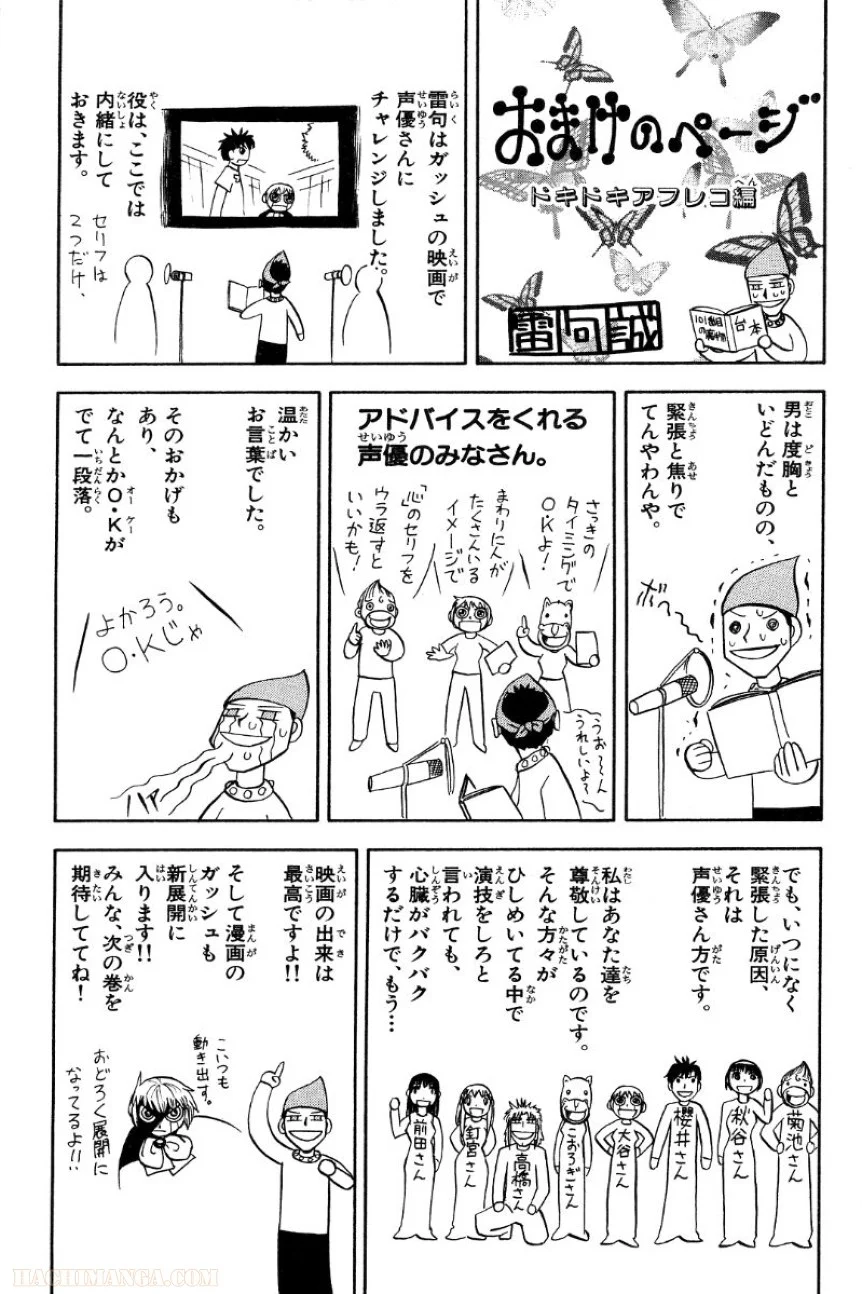 おまけのページ
ドキドキアフレコ編
雷句誠
101番目の魔物
台本
雷句はガッシュの映画で
声優さんに
チャレンジしました。
役は、ここでは
内緒にして
おきます。
セリフは
2つだけ、
男は度胸と
いどんだものの、
緊張と焦りで
てんやわんや。
ボヘ〜
アドバイスをくれる
声優のみなさん。
さっきの
タイミングで
O・Kよ!
まわりに人が
たくさんいる
イメージで
「心」のセリフを
ウラ返すと
いいかも!
うお〜〜ん
うれしいよ〜
温かい
お言葉でした。
そのおかげも
あり、
なんとかO・Kが
でて一段落。
よかろう。
O・Kじゃ
ハァ
でも、いつになく
緊張した原因、
それは
声優さん方です。
私はあなた達を
尊敬しているのです。
そんな方々が
ひしめいてる中で
演技をしろと
言われても、
心臓がバクバク
するだけで、もう…
菊池さん
秋谷さん
櫻井さん
大谷さん
こおろぎさん
高橋さん
釘宮さん
前田さん
映画の出来は
最高ですよ!!
そして漫画の
ガッシュも
新展開に
入ります!!
みんな、次の巻を
期待しててね!
こいつも
動き出す。
おどろく展開に
なってるよ!!
HACHIMANGA.COM